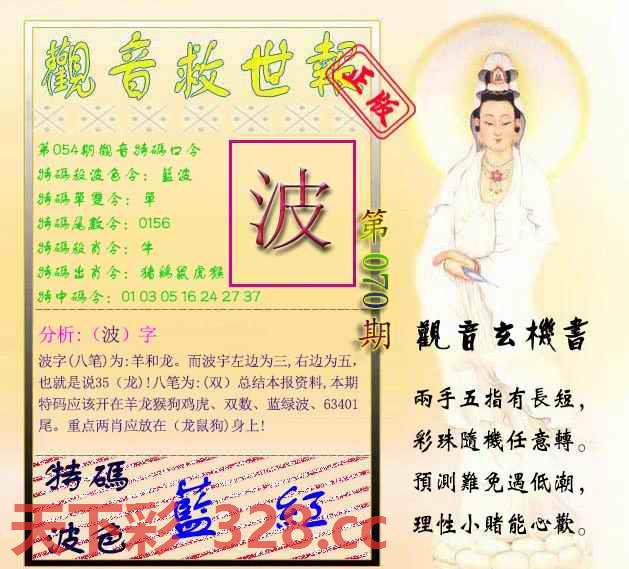 觀音救世報
正版
第054期觀音特碼口令
特碼殺波色令：藍波
特碼單雙令：單
特碼尾數令：0156
特碼殺肖令：牛
特碼出肖令：豬鷄鼠虎猴
特中碼令：01 03 05 16 24 27 37
波
第070期
分析:（波）字
波字(八笔)为:羊和龙。而波宇左边为三,右边为五,
也就是说35（龙)!八笔为:(双）总结本报资料,本期
特码应该开在羊龙猴狗鸡虎、双数、蓝绿波、63401
尾。重点两肖应放在（龙鼠狗)身上!
特碼
波色
藍 紅
天下彩 328.cc
觀音玄機書
兩手五指有長短，
彩珠隨機任意轉。
預測難免遇低潮，
理性小賭能心歡。